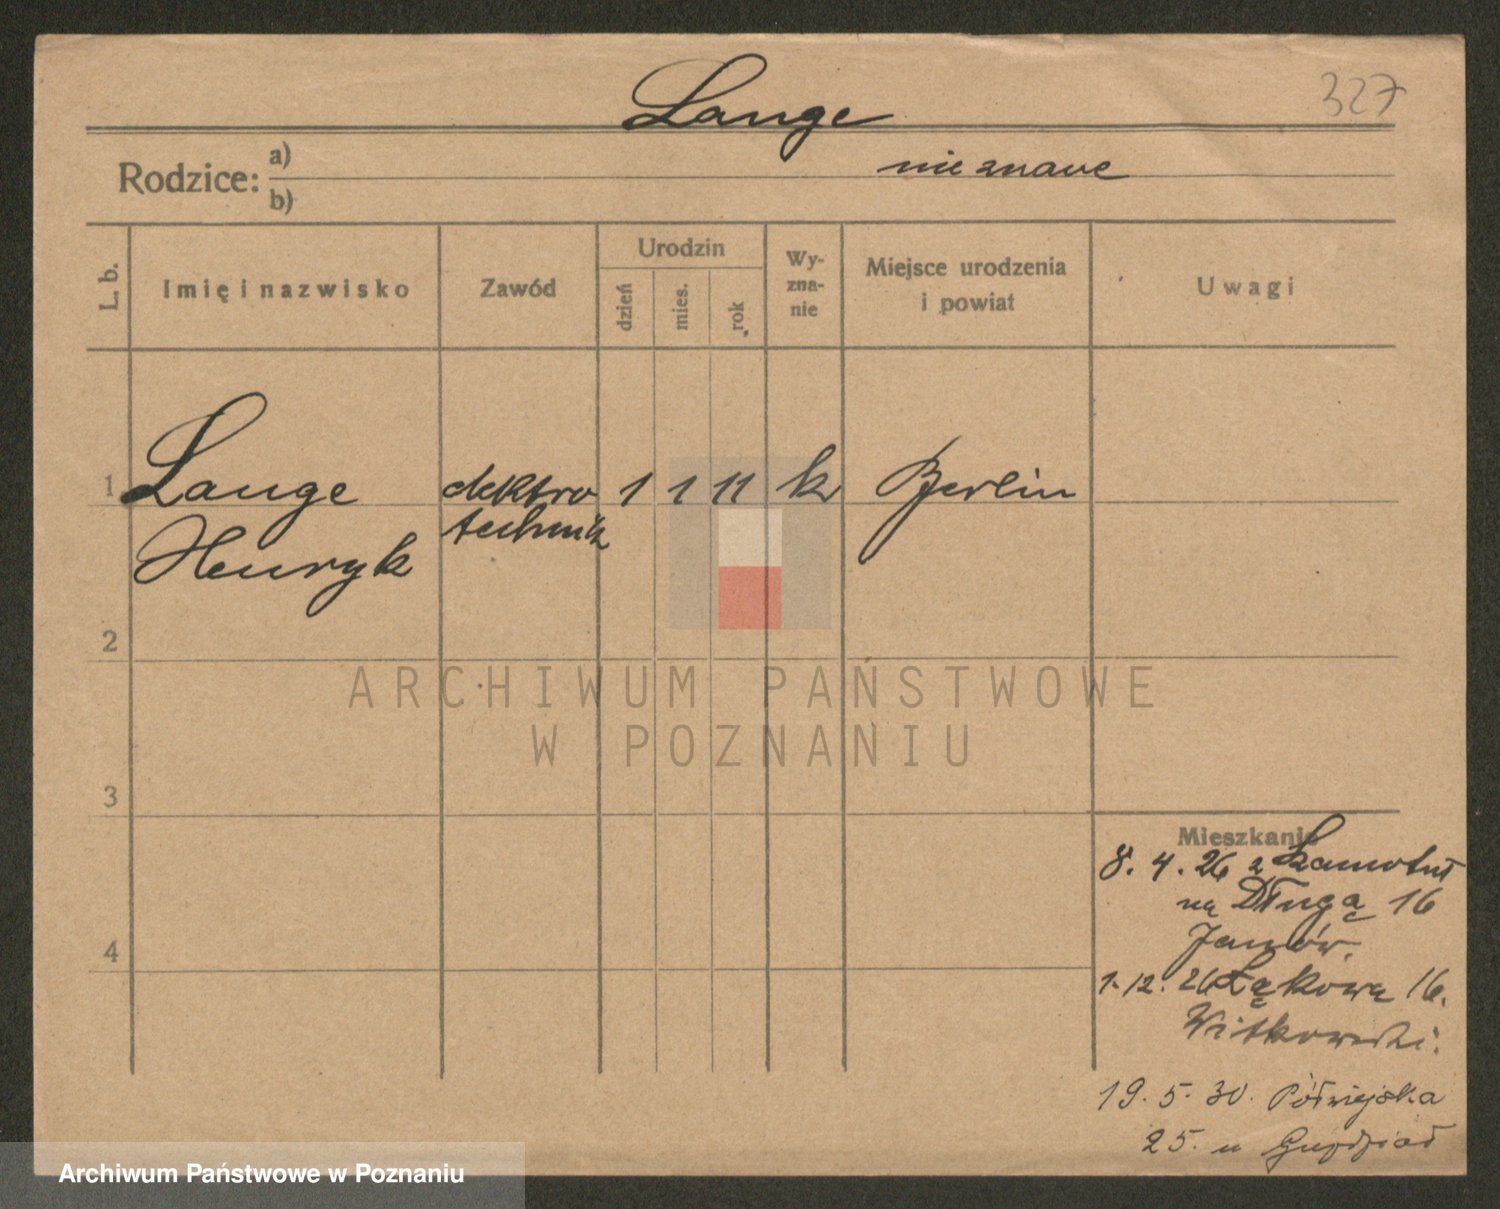 Lange
327
Rodzice: a)
b)
nieznane
L. b.
Imię i nazwisko
Zawód
Urodzin
dzień
mies.
rok
Wy-
zna-
nie
Miejsce urodzenia
i powiat
Uwagi
1 Lange elektro 1 1 11 kr Berlin
Henryk technik
2
3
4
ARCHIWUM PAŃSTWOWE
W POZNANIU
Mieszkanie
8. 4. 26 z Szamotuł
na Długą 16
1. 12. 26 Łąkowa 16.
Witkowski.
19. 5. 30. Półwiejska
25. u
Archiwum Państwowe w Poznaniu